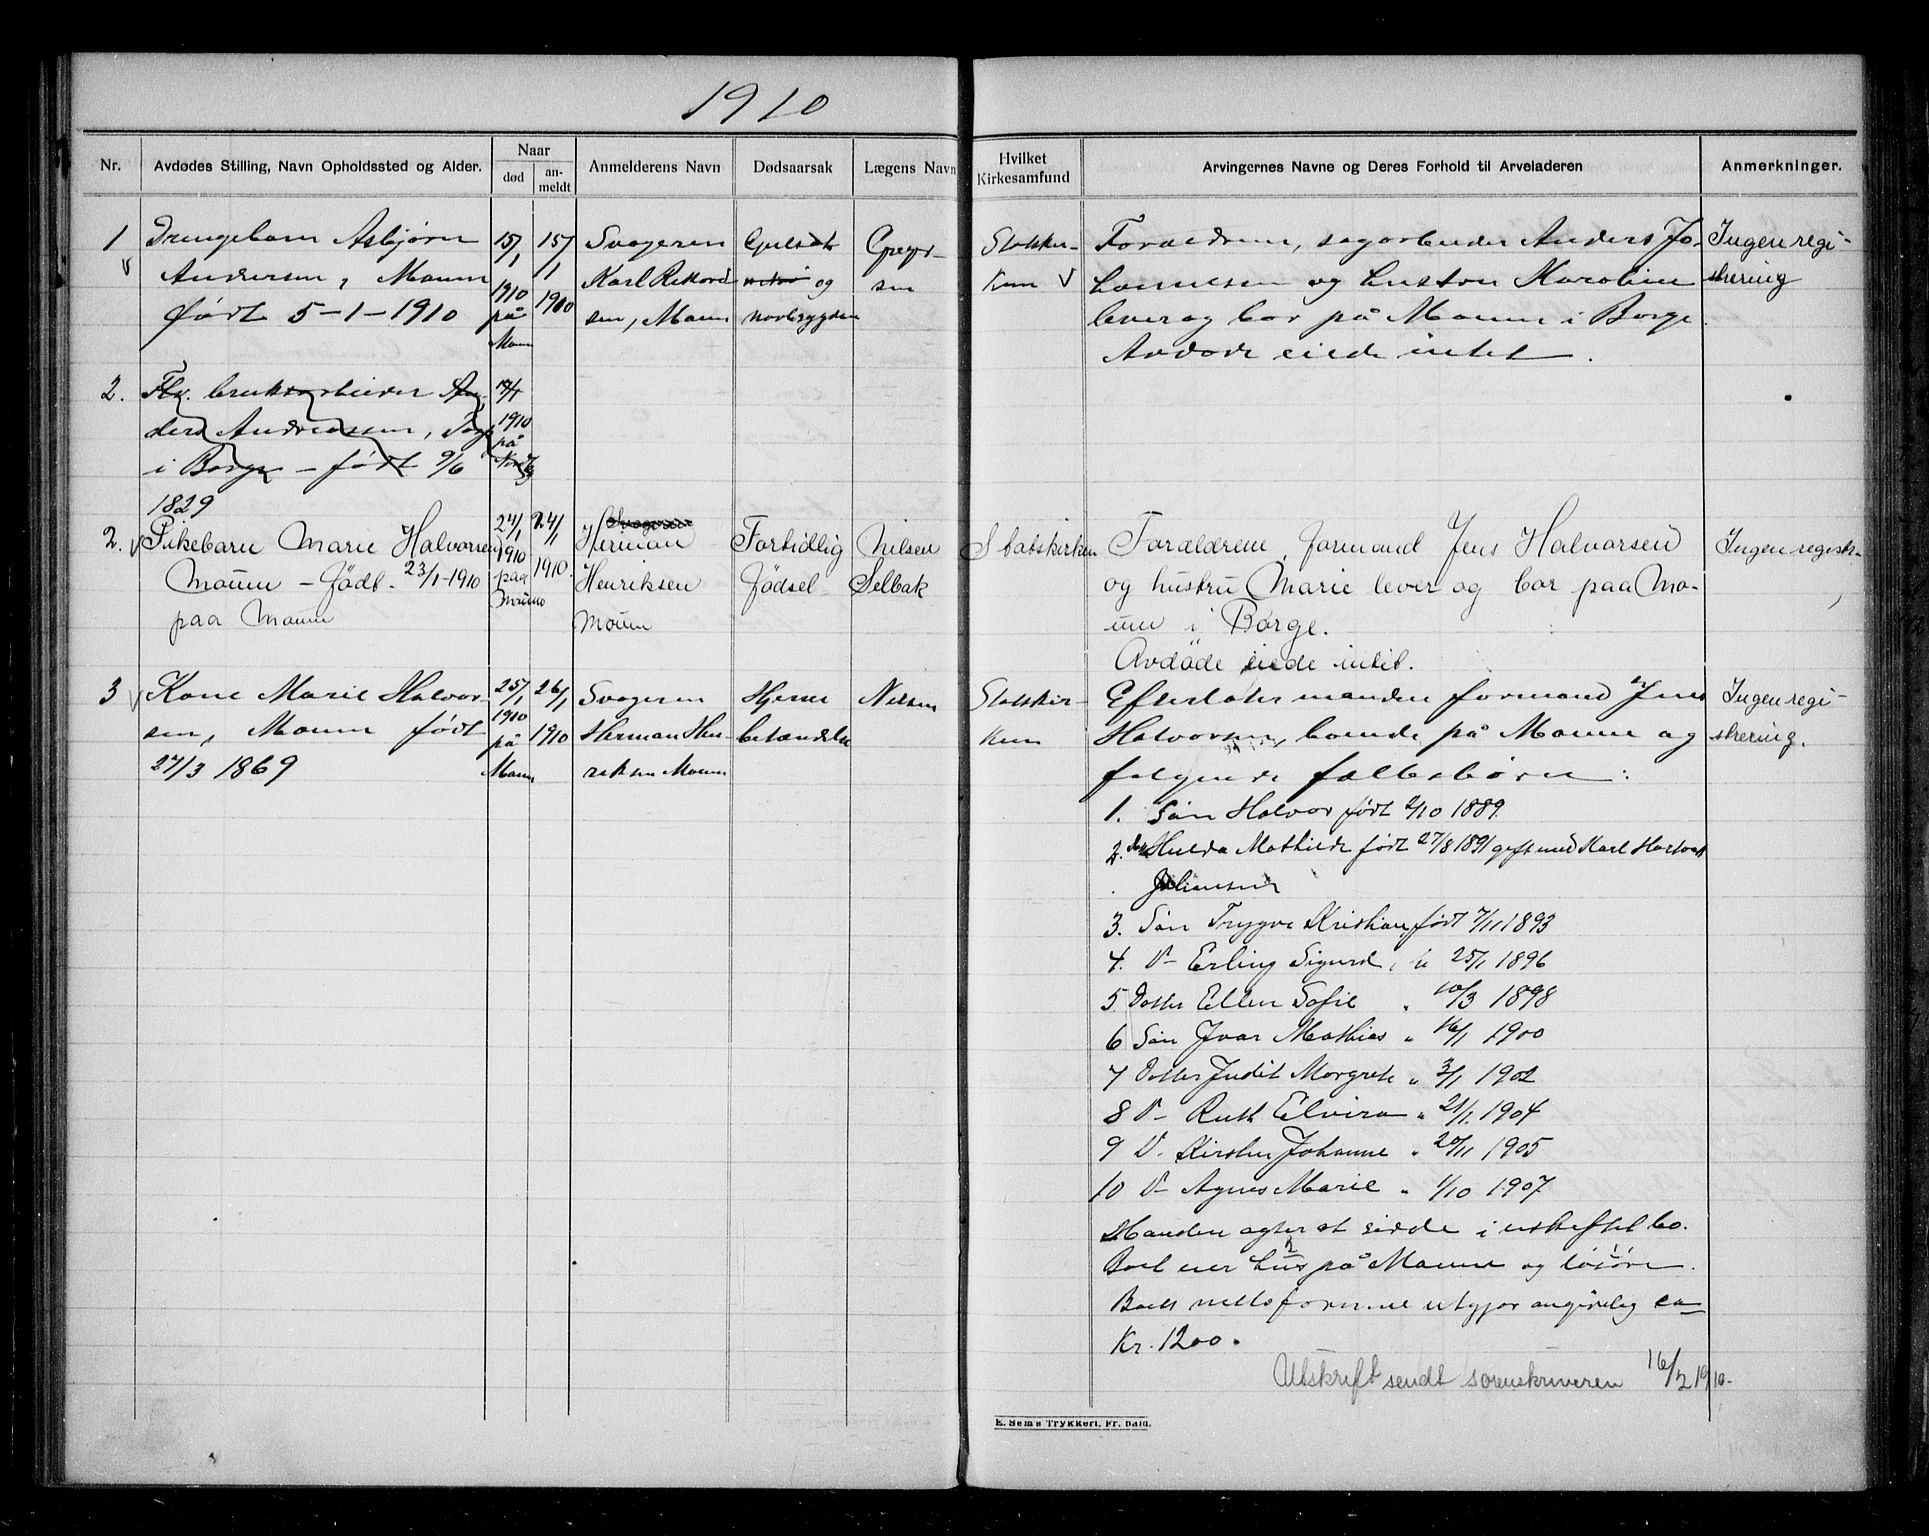 1910
Nr.
Avdødes Stilling, Navn Opholdssted og Alder.
Naar
død
an-
meldt
Anmelderens Navn
Dødsaarsak
Lægens Navn
Hvilket
Kirkesamfund
Arvingernes Navne og Deres Forhold til Arveladeren
Anmerkninger.
1
Drengebarn Asbjørn
Andersen, Moum
født 5-1-1910
15/1
1910
på
Moum
15/1
1910
Svogeren
Karl Rekord
sen, Moum
og
Statskir-
ken
Forældrene, sagarbeider Anders Jo-
hannessen og hustru Karoline
lever og bor på Moum i Borge.
Avdøde eiede intet.
Ingen regi-
strering
2.
Fhv. bruksarbeider An-
ders Andreassen,
i Borge - født 9/6
1829
1910
på
2.
Pikebarn Marie Halvorsen
Moum - født 23/1-1910
paa Moum
24/1
1910
paa
Moum
24/1
1910.
Svogeren
Herman
Henriksen
Moum
Fortidlig
Fødsel
Nilsen
Selbak
Statskirken
Forældrene, formand Jens Halvorsen
og hustru Marie lever og bor paa Mo-
um i Borge.
Avdøde eiede intet.
Ingen registr.
3
Kone Marie Halvor-
sen, Moum født
27/3 1869
25/1
1910
på
Moum
26/1
1910
Svogeren
Herman Hen-
riksen Moum
Hjerne
betændelse
Nilsen
Statskir-
ken
Efterlater manden formand Jens
Halvorsen, boende på Moum og
følgende fællesbørn:
1. Søn Halvor født 2/10 1889.
2. Hulda Mathilde født 27/8 1891 gift med Karl Hartvik
Johansen
3. Søn Trygve Kristian, født 7/11 1893
4. D- Erling Sigurd, " 25/1 1896
5 Datter Ellen Sofie " 10/3 1898
6 Søn Ivar Mathias " 16/1 1900
7 Datter Judit Margrete " 3/1 1902
8 D- Ruth Elvira " 21/1 1904
9 D. Kirsten Johanne " 20/11 1905
10 D- Agnes Marie " 1/10 1907
Manden agter at sidde i uskiftet bo.
Boet eier hus på Moum og løsøre.
Boets nettoformue utgjør angivelig ca
Kr. 1200.
Utskrift sendt sorenskriveren 16/2 1910.
Ingen regi-
strering.
E. Sem's Trykkeri, Fr. hald.